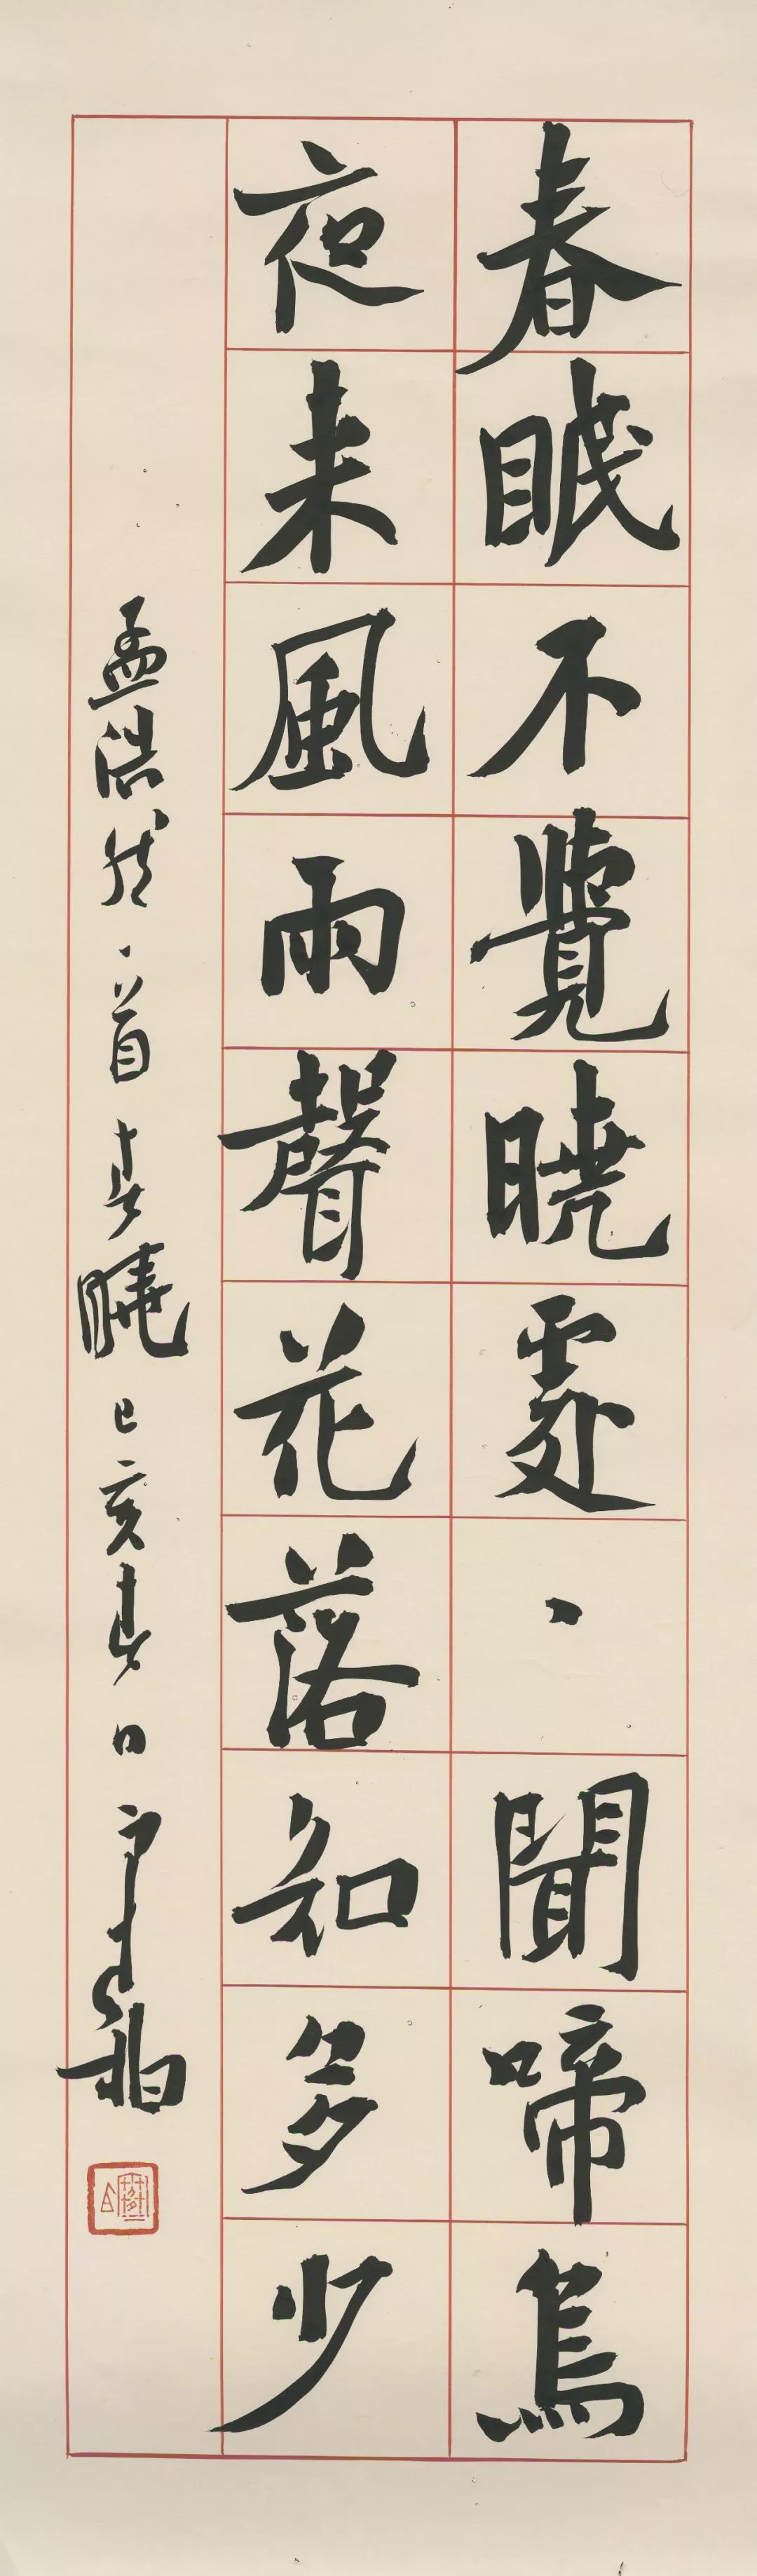 春眠不覺曉處、聞啼鳥
夜来風雨聲花落知多少
孟浩然一首春曉己亥春日